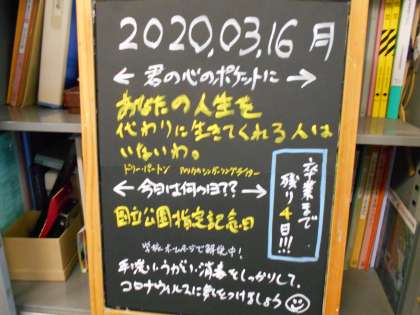 2020.03.16 月
君の心のポケットに
あなたの人生を
代わりに生きてくれる人は
いないわ。
ドリー・パートン アメリカのシンガーソングライター
今日は何の日??
国立公園指定記念日
学校ホームページで解説中!
手洗い・うがい・消毒をしっかりして、
コロナウィルスに気をつけましょう
卒業まで
残り4日!!!